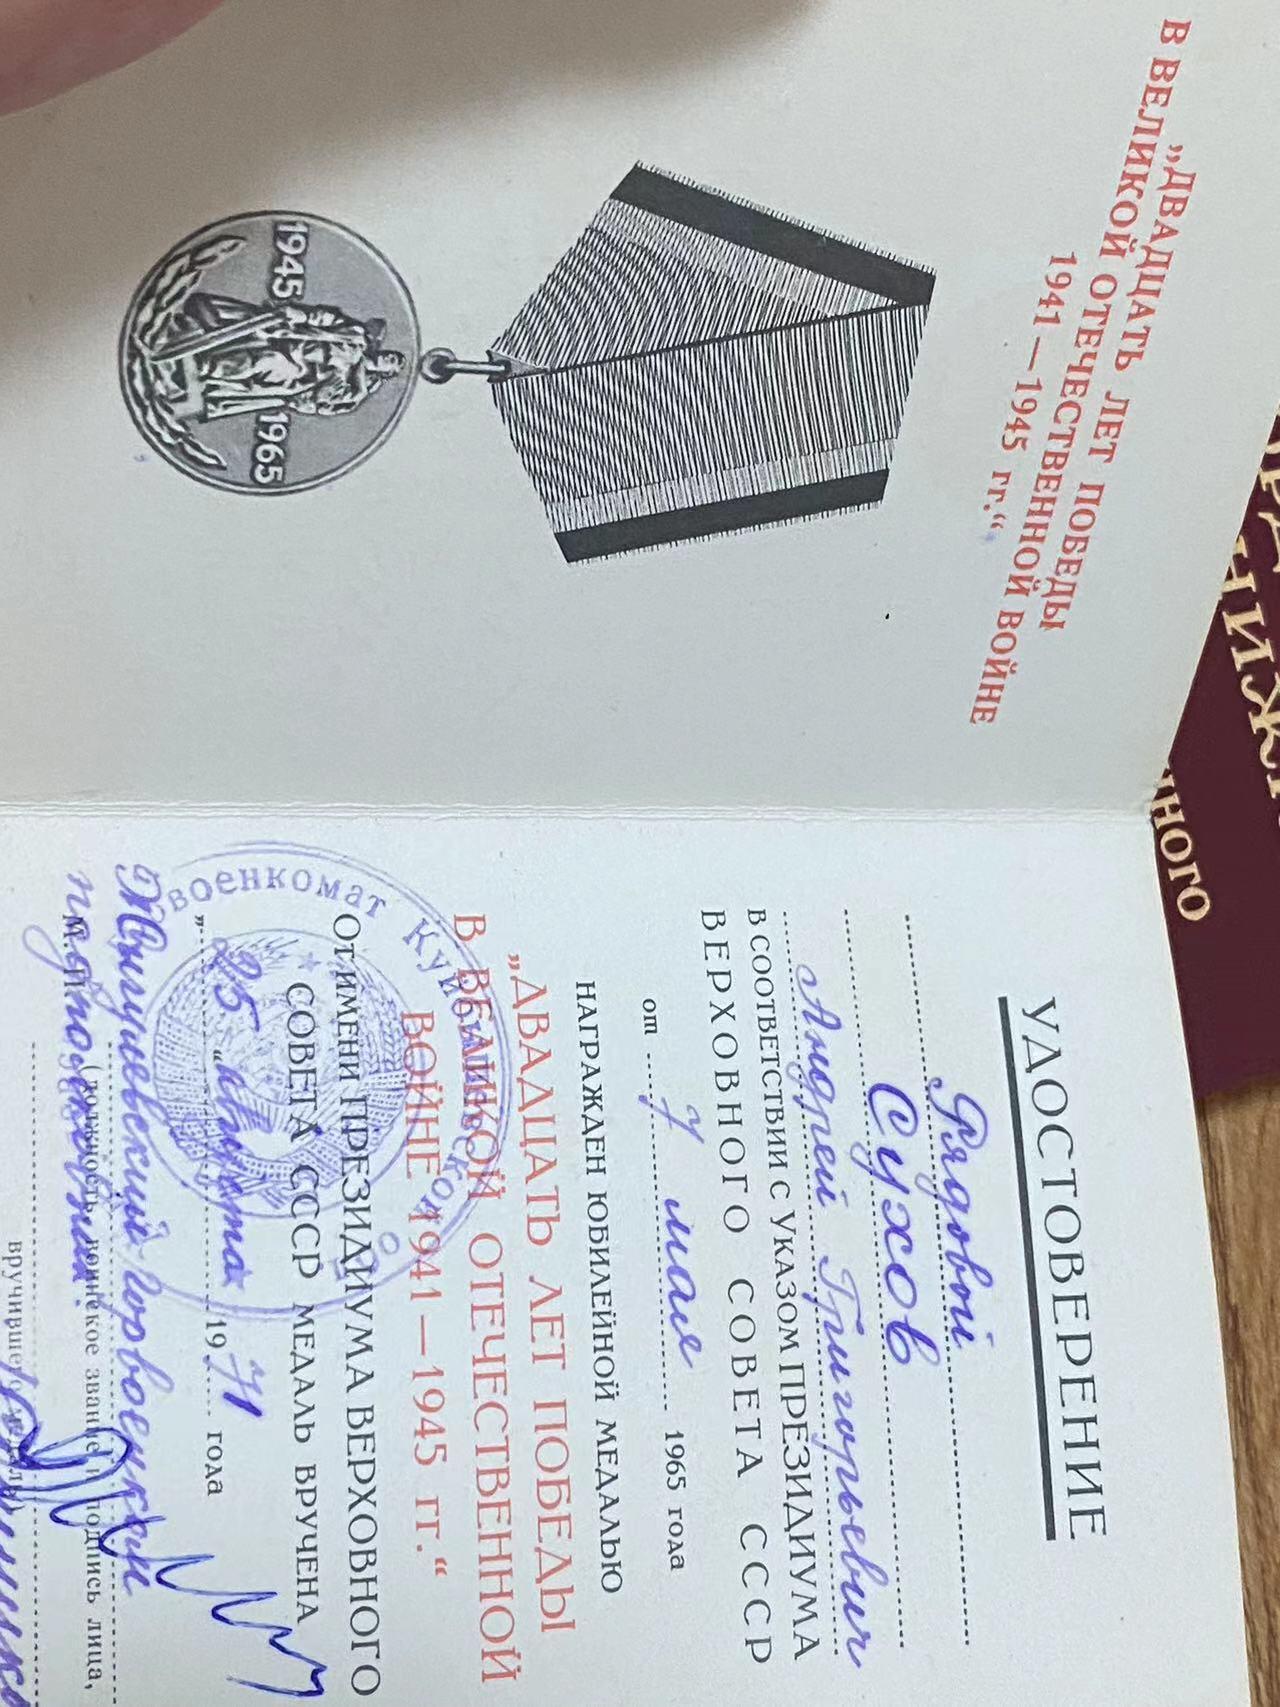 „ДВАДЦАТЬ ЛЕТ ПОБЕДЫ
В ВЕЛИКОЙ ОТЕЧЕСТВЕННОЙ ВОЙНЕ
1941—1945 гг.“
1945 1965
УДОСТОВЕРЕНИЕ
Рядовой
Сухов
Андрей Григорьевич
В СООТВЕТСТВИИ С УКАЗОМ ПРЕЗИДИУМА
ВЕРХОВНОГО СОВЕТА СССР
от 7 мая 1965 года
НАГРАЖДЕН ЮБИЛЕЙНОЙ МЕДАЛЬЮ
„ДВАДЦАТЬ ЛЕТ ПОБЕДЫ
В ВЕЛИКОЙ ОТЕЧЕСТВЕННОЙ
ВОЙНЕ 1941—1945 гг.“
ОТ ИМЕНИ ПРЕЗИДИУМА ВЕРХОВНОГО
СОВЕТА СССР МЕДАЛЬ ВРУЧЕНА
„25“ августа 1971 года
горвоенком
М.П. (должность, воинское звание и подпись лица,
подполковник
вручившего медаль)
военкомат Куйбышевской
НИЖ
ННОГО